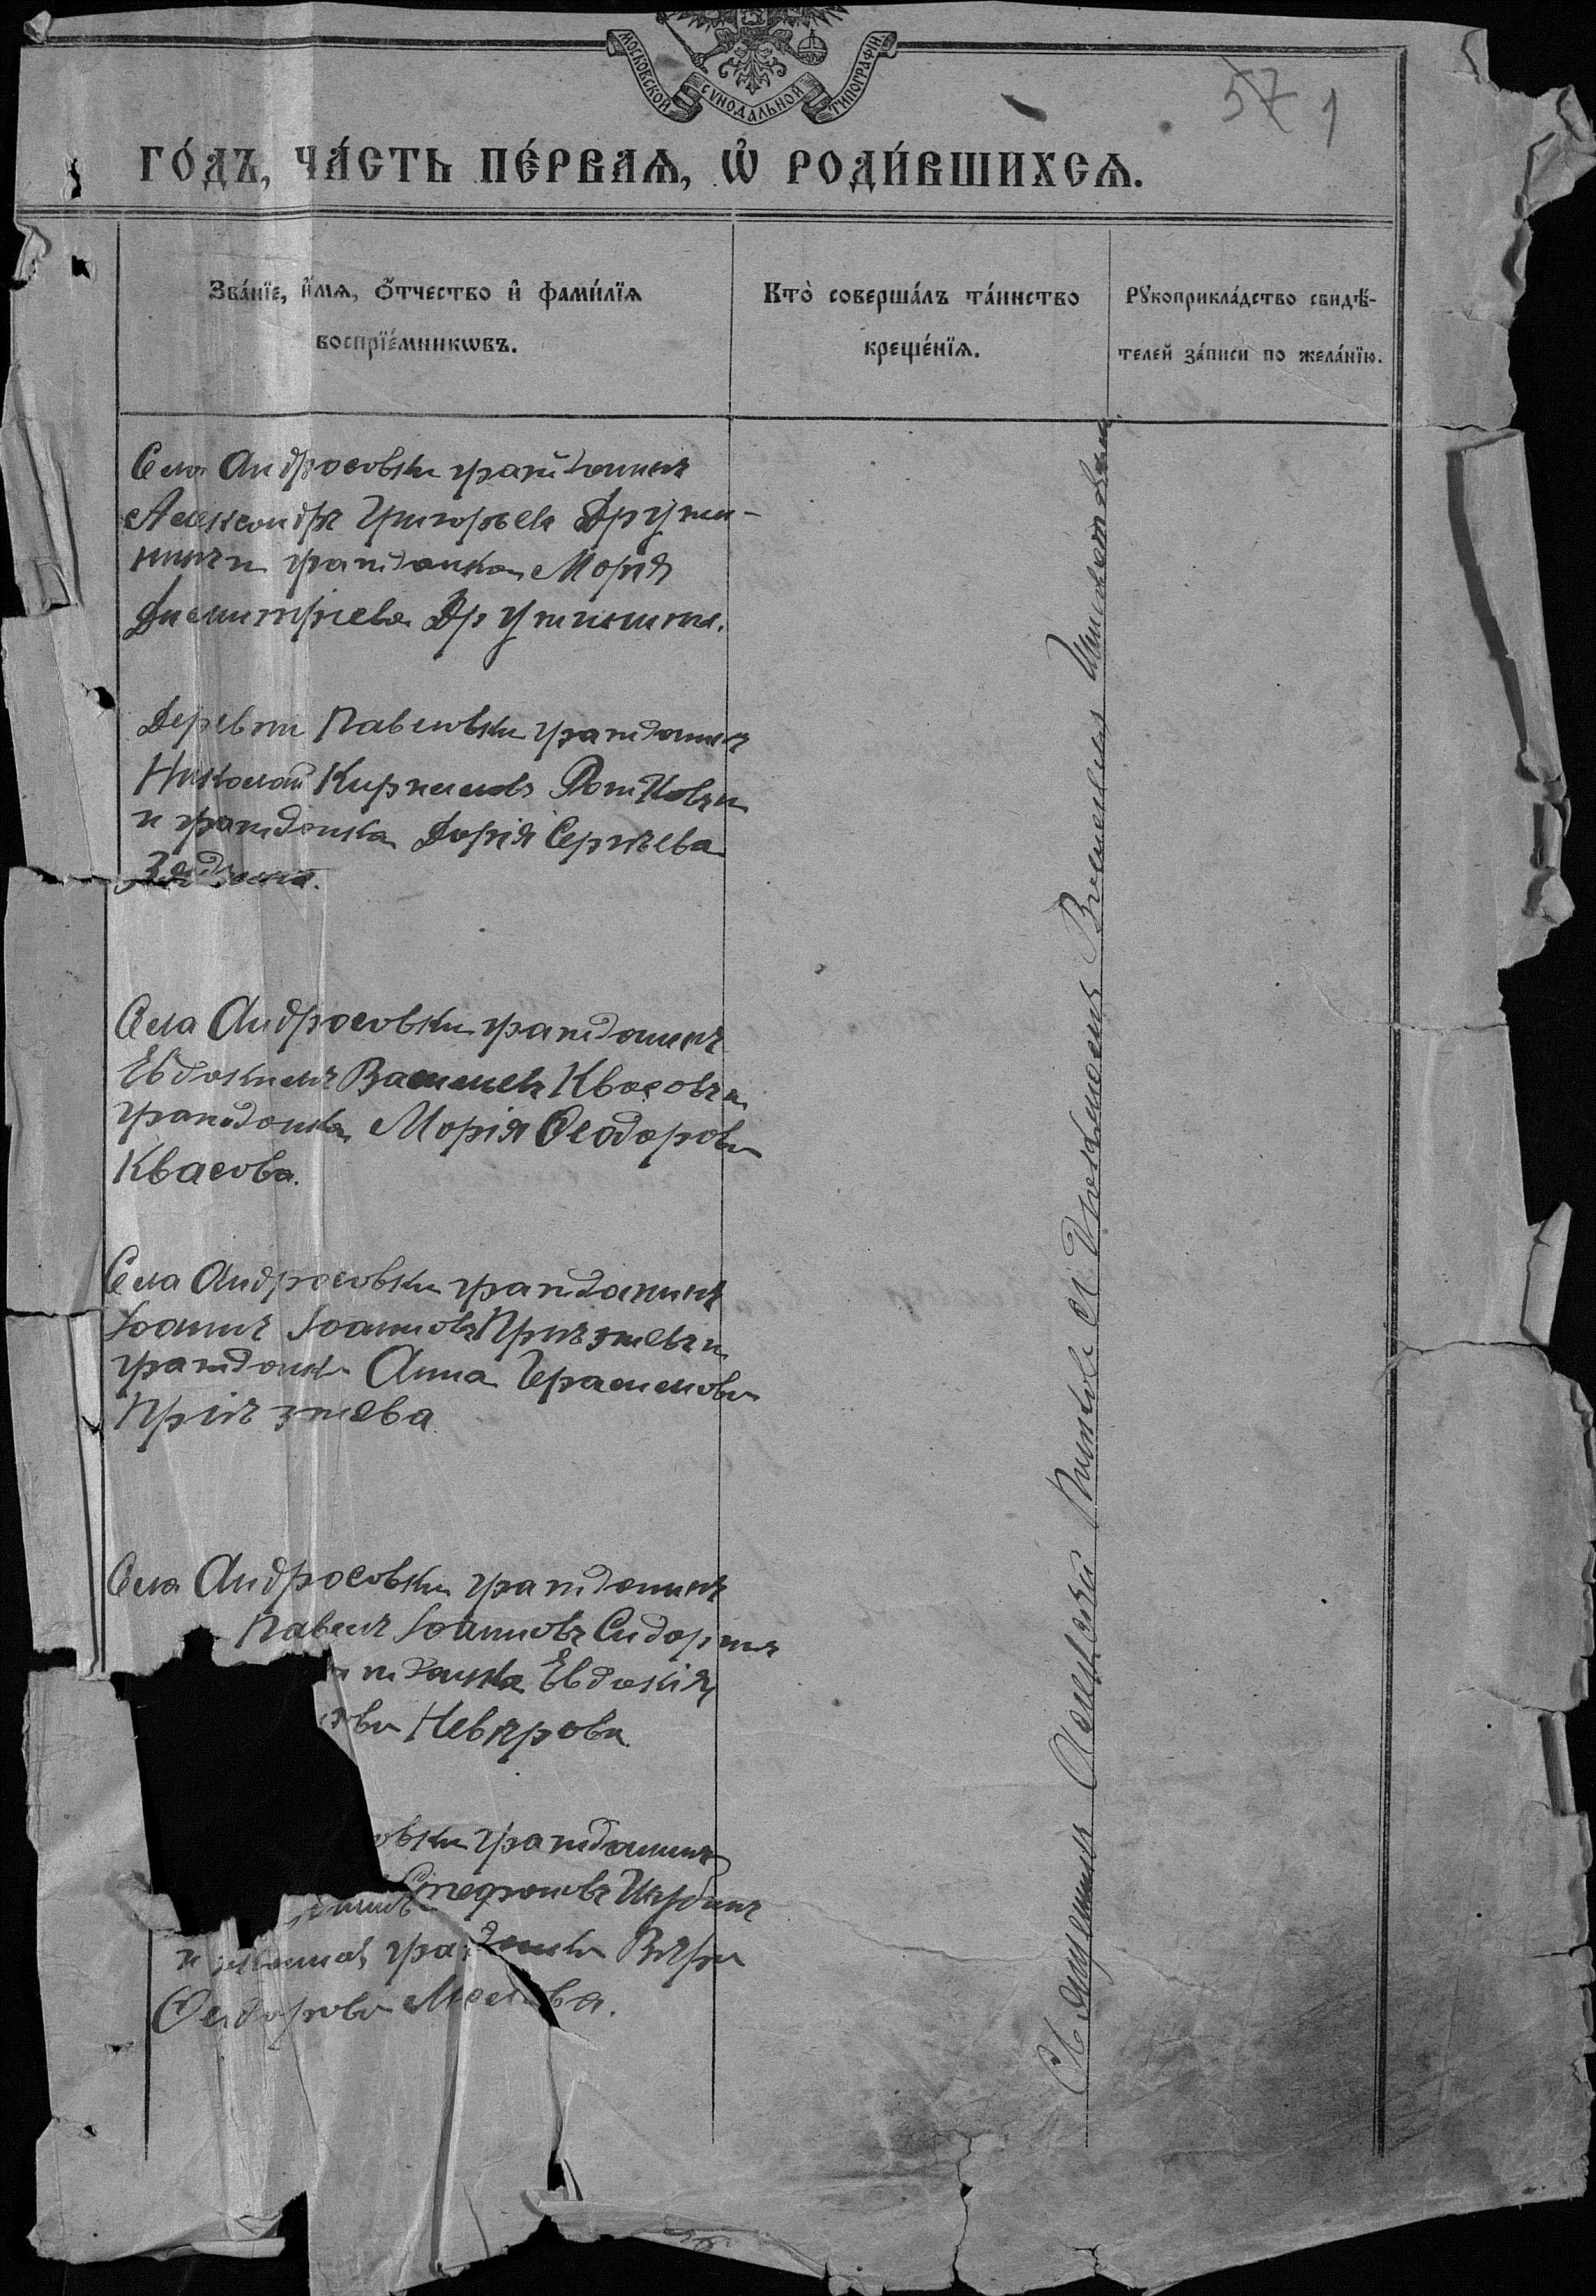 МОСКОВСКОЙ СѴНОДАЛЬНОЙ ТИПОГРАФІИ
57 1
ГО́ДЪ, ЧА́СТЬ ПЕ́РВАѦ, Ѡ҆ РОДИ́ВШИХСѦ.
Зва́нїе, и҆́мѧ, ѻ҆́тчество и҆ фами́лїѧ
воспрїе́мникѡвъ.
Кто̀ соверша́лъ та́инство
креще́нїѧ.
Рꙋкоприкла́дство свидѣ́-
телей за́писи по жела́нїю.
Села Андросовки гражданинъ
Александръ Григорьевъ Дружи-
нинъ и гражданка Марія
Димитріева Дружинина.
Деревни Павловки гражданинъ
Николай Кирилловъ
и гражданка Дарія Сергѣева
Села Андросовки гражданинъ
Евдокимъ Васильевъ Квасовъ и
гражданка Марія Ѳеодорова
Квасова.
Села Андросовки гражданинъ
Іоаннъ Іоанновъ Пріѣзжевъ и
гражданка Анна Герасимова
Пріѣзжева
Села Андросовки гражданинъ
Павелъ Іоанновъ Сидоринъ
жданка Евдокія
ова Невѣрова.
овки гражданинъ
Стефановъ
гражданка Вѣра
Ѳеодорова
Священникъ Алексѣй съ Псаломщикомъ